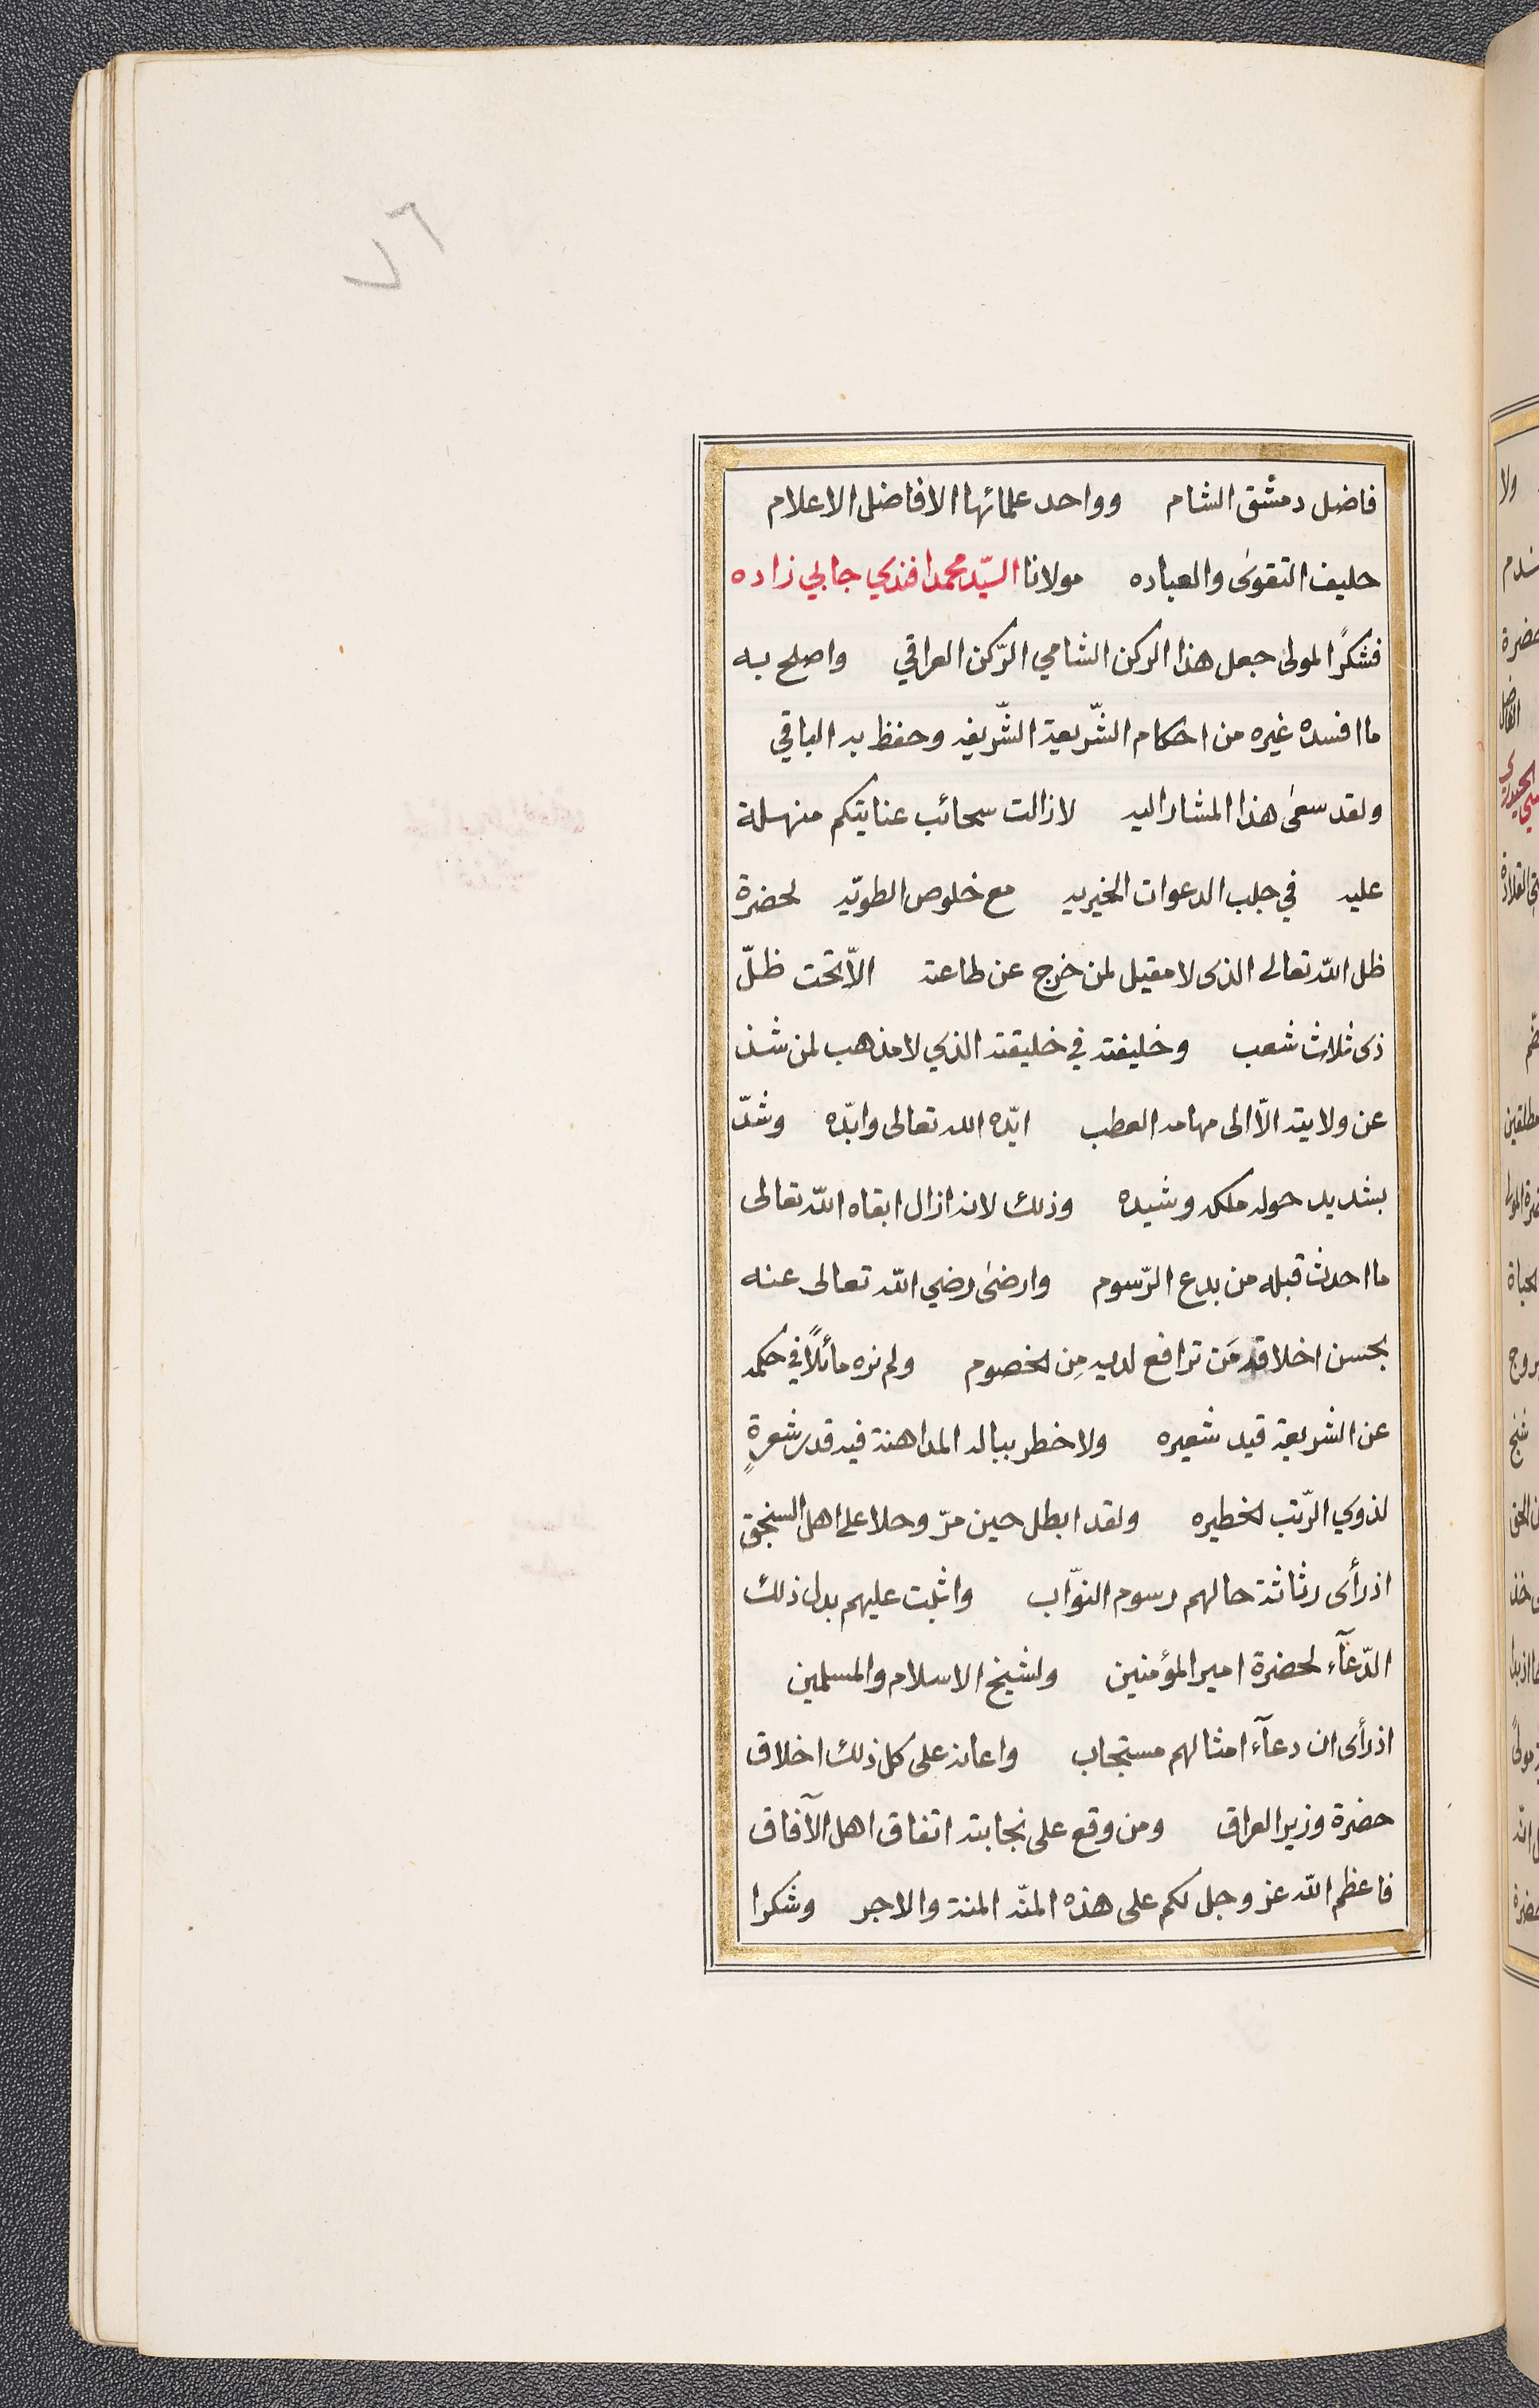 ٧٦
فاضل دمشق الشام وواحد علمائها الافاضل الاعلام
حليف التقوى والعباده مولانا السيّد محمد افندي جابي زاده
فشكرًا لمولى جعل هذا الركن الشامي الرّكن العراقي واصلح به
ما افسده غيره من احكام الشّريعة الشّريفه وحفظ به الباقي
ولقد سعى هذا المشار اليه لا زالت سحائب عنايتكم منهلة
عليه في جلب الدعوات الخيريه مع خلوص الطويّه لحضرة
ظل الله تعالى الذى لا مقيل لمن خرج عن طاعته الاّ تحت ظلّ
ذى ثلاث شعب وخليفته في خليقته الذي لا مذهب لمن شذ
عن ولايته الاّ الى مهامه العطب ايّده الله تعالى وابّده وشدّ
بشديد حوله ملكه وشيده وذلك لانه ازال ابقاه الله تعالى
ما احدث قبله من بدع الرّسوم وارضى رضي الله تعالى عنه
بحسن اخلاقه مَن ترافع لديه مِن الخصوم ولم نره مائلاً في حكمه
عن الشريعة قيد شعيره ولا خطر بباله المداهنة فيه قدر شعرةٍ
لذوي الرّتب الخطيره ولقد ابطل حين مرّ وحلا على اهل السنجق
اذ رأى رثاثة حالهم رسوم النوّاب واثبت عليهم بدل ذلك
الدّعآء لحضرة امير المؤمنين ولشيخ الاسلام والمسلمين
اذ رأى ان دعآء امثالهم مستجاب واعانه على كل ذلك اخلاق
حضرة وزير العراق ومن وقع على نجابته اتفاق اهل الآفاق
فاعظم الله عز وجل لكم على هذه المنّه المنة والاجر وشكرا